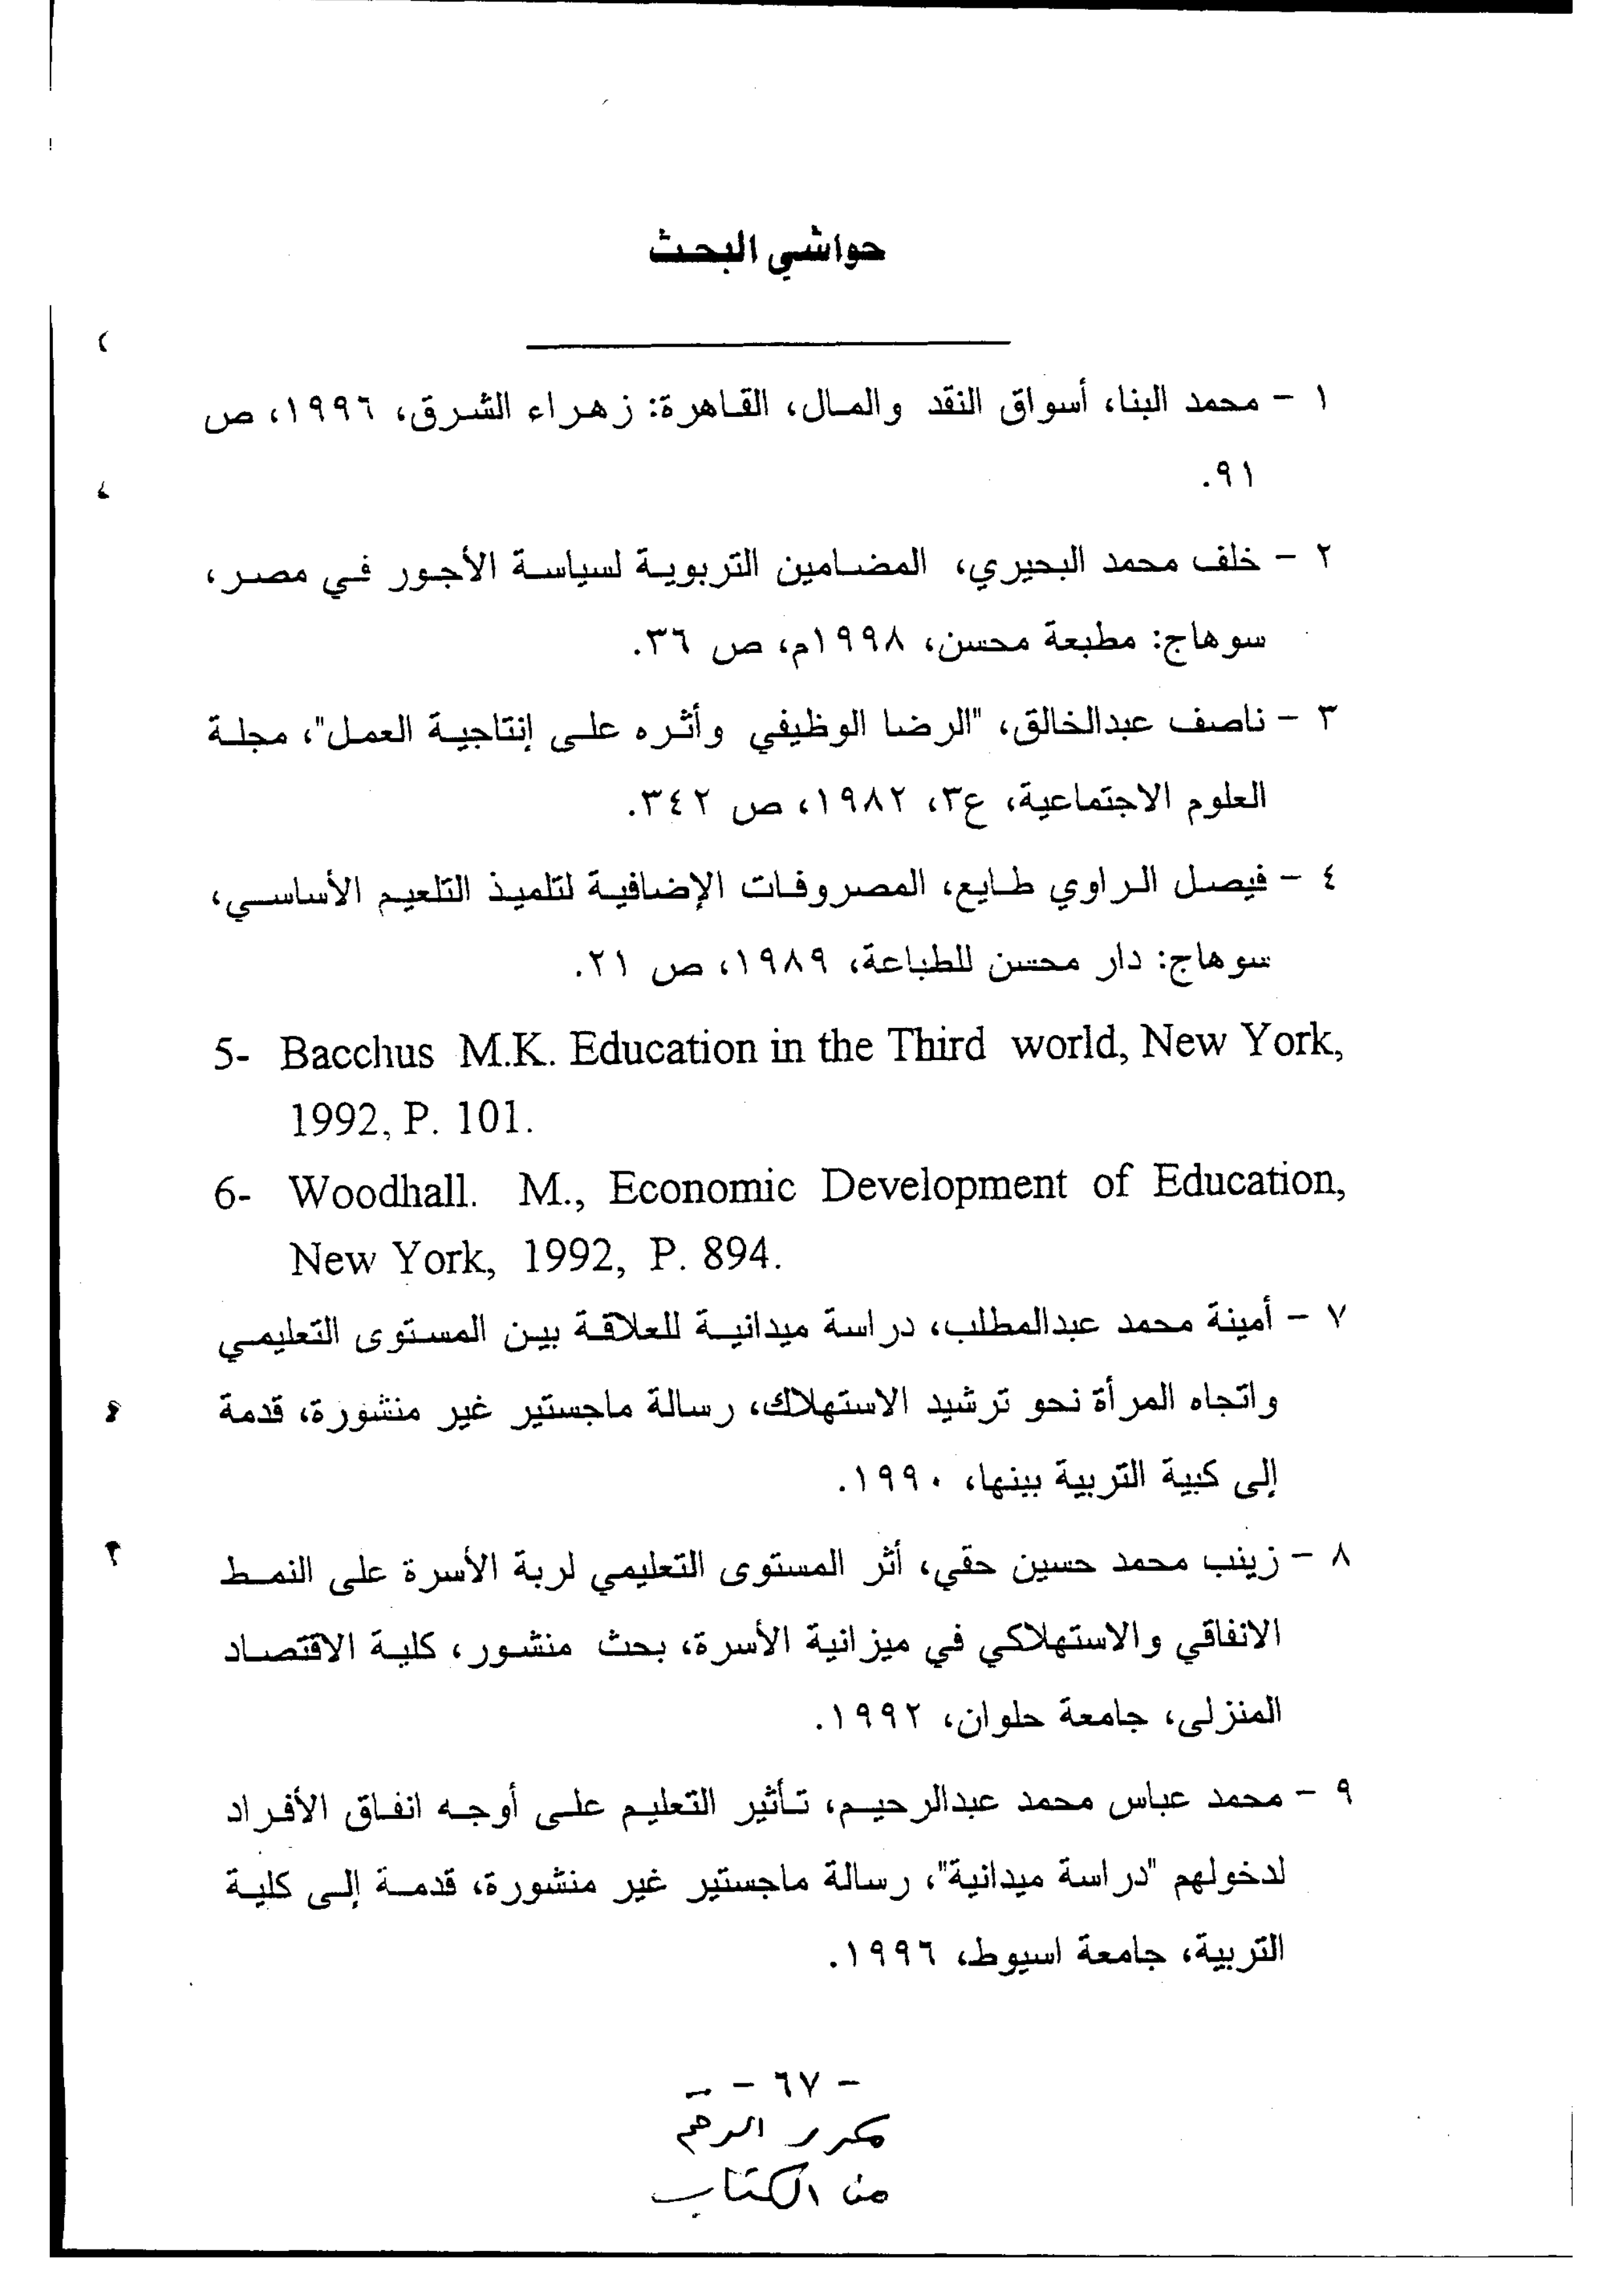 حواشي البحث
١ - محمد البنا، أسواق النقد والمال، القاهرة: زهراء الشرق، ١٩٩٦، ص
٩١.
٢ - خلف محمد البحيري، المضامين التربوية لسياسة الأجور في مصر،
سوهاج: مطبعة محسن، ١٩٩٨م، ص ٣٦.
٣ - ناصف عبدالخالق، "الرضا الوظيفي وأثره على إنتاجية العمل"، مجلة
العلوم الاجتماعية، ع٣، ١٩٨٢، ص ٣٤٢.
٤ - فيصل الراوي طايع، المصروفات الإضافية لتلميذ التلعيم الأساسي،
سوهاج: دار محسن للطباعة، ١٩٨٩، ص ٢١.
5- Bacchus M.K. Education in the Third world, New York,
1992, P. 101.
6- Woodhall. M., Economic Development of Education,
New York, 1992, P. 894.
٧ - أمينة محمد عبدالمطلب، دراسة ميدانية للعلاقة بين المستوى التعليمي
واتجاه المرأة نحو ترشيد الاستهلاك، رسالة ماجستير غير منشورة، قدمة
إلى كبية التربية ببنها، ١٩٩٠.
٨ - زينب محمد حسين حقي، أثر المستوى التعليمي لربة الأسرة على النمط
الانفاقي والاستهلاكي في ميزانية الأسرة، بحث منشور، كلية الاقتصاد
المنزلى، جامعة حلوان، ١٩٩٢.
٩ - محمد عباس محمد عبدالرحيم، تأثير التعليم على أوجه انفاق الأفراد
لدخولهم "دراسة ميدانية"، رسالة ماجستير غير منشورة، قدمة إلى كلية
التربية، جامعة اسيوط، ١٩٩٦.
- ٦٧ -
مكرر الرقم
من الكتاب